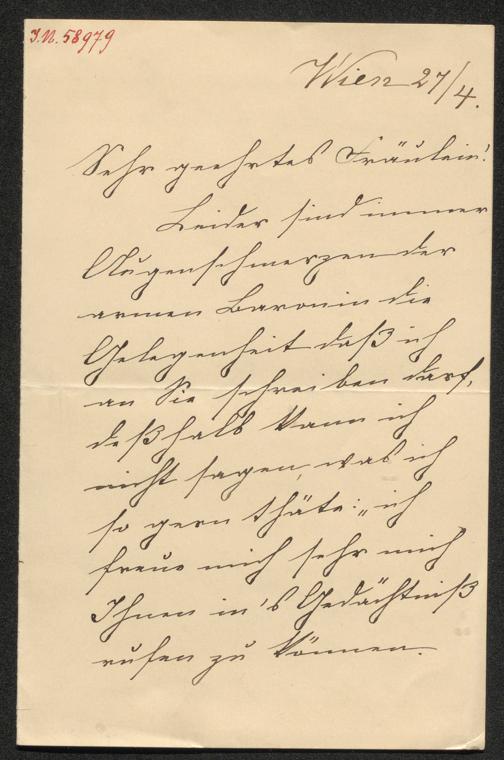 I.N. 58979
Wien 27/4.
Sehr geehrtes Fräulein!
Leider sind immer
Augenschmerzen der
armen Baronin die
Gelegenheit daß ich
an Sie schreiben darf,
deßhalb kann ich
nicht sagen, was ich
so gern thäte: „ich
freue mich sehr mich
Ihnen in's Gedächtniß
rufen zu können.